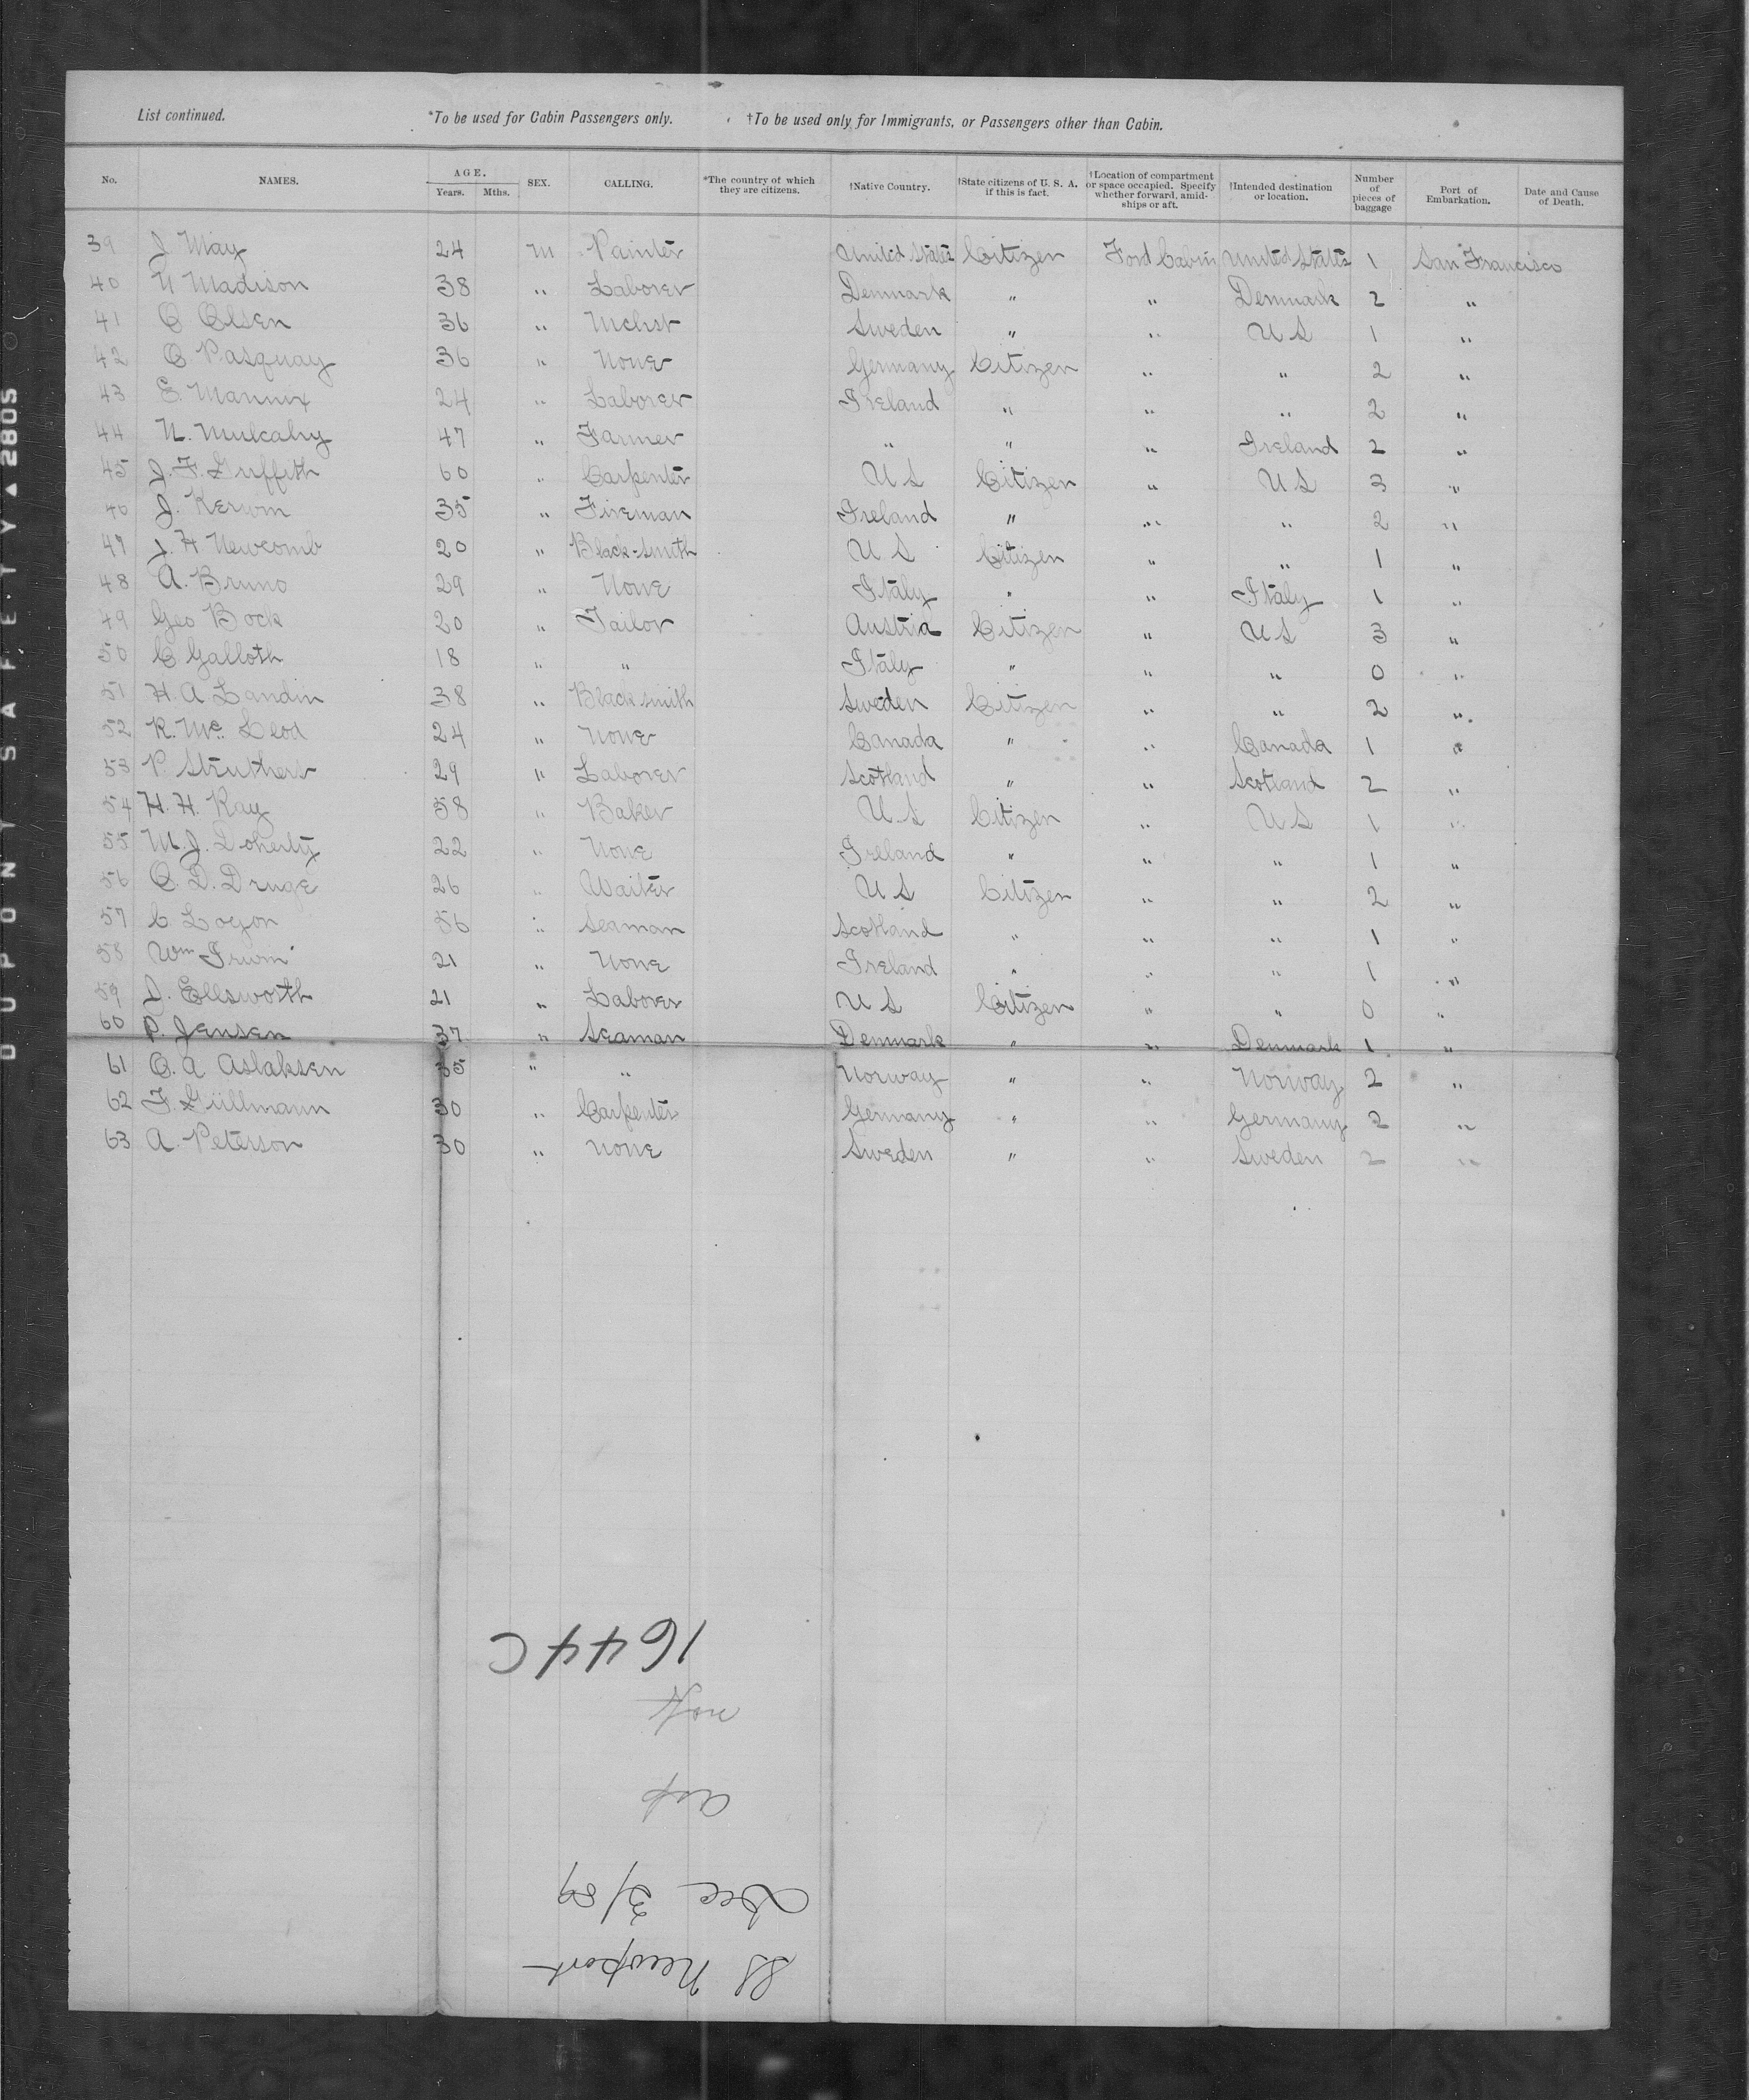 List continued. *To be used for Cabin Passengers only. †To be used only for Immigrants, or Passengers other than Cabin.
No. NAMES. AGE. Years. Mths. SEX. CALLING. *The country of which they are citizens. †Native Country. †State citizens of U. S. A. if this is fact. †Location of compartment or space occupied. Specify whether forward, amid-ships or aft. †Intended destination or location. Number of pieces of baggage Port of Embarkation. Date and Cause of Death.
39 J. May 24 M Painter United States Citizen Ford Cabin United States 1 San Francisco
40 N Madison 38 " Laborer Denmark " " Denmark 2 "
41 O Olsen 36 " Mchst Sweden " " U S 1 "
42 O Pasquay 36 " None Germany Citizen " " 2 "
43 E. Mannix 24 " Laborer Ireland " " " 2 "
44 N. Mulcahy 47 " Farmer " " " Ireland 2 "
45 J. F. Griffith 60 " Carpenter U S Citizen " U S 3 "
46 J. Kerwin 35 " Fireman Ireland " " " 2 "
47 J. H Newcomb 20 " Black-smith U S Citizen " " 1 "
48 A. Bruno 29 " None Italy " " Italy 1 "
49 Geo Bock 20 " Tailor Austria Citizen " U S 3 "
50 C Galloth 18 " " Italy " " " 0 "
51 H. A Landin 38 " Blacksmith Sweden Citizen " " 2 "
52 R. Mc. Leod 24 " None Canada " " Canada 1 "
53 P. Struthers 29 " Laborer Scotland " " Scotland 2 "
54 H. H. Kay 58 " Baker U. S Citizen " U S 1 "
55 M. J. Doherty 22 " None Ireland " " " 1 "
56 O. D. Druge 26 " Waiter U S Citizen " " 2 "
57 C Logon 56 " Seaman Scotland " " " 1 "
58 Wm Irwin 21 " None Ireland " " " 1 "
59 J. Ellsworth 21 " Laborer U S Citizen " " 0 "
60 P. Jensen 37 " Seaman Denmark " " Denmark 1 "
61 O. A Aslaksen 35 " " Norway " " Norway 2 "
62 F. Güllmann 30 " Carpenter Germany " " Germany 2 "
63 A. Peterson 30 " None Sweden " " Sweden 2 "
SS Newport
Dec 3/89
asp
1644C
DUPONT SAFETY ▲ 2805